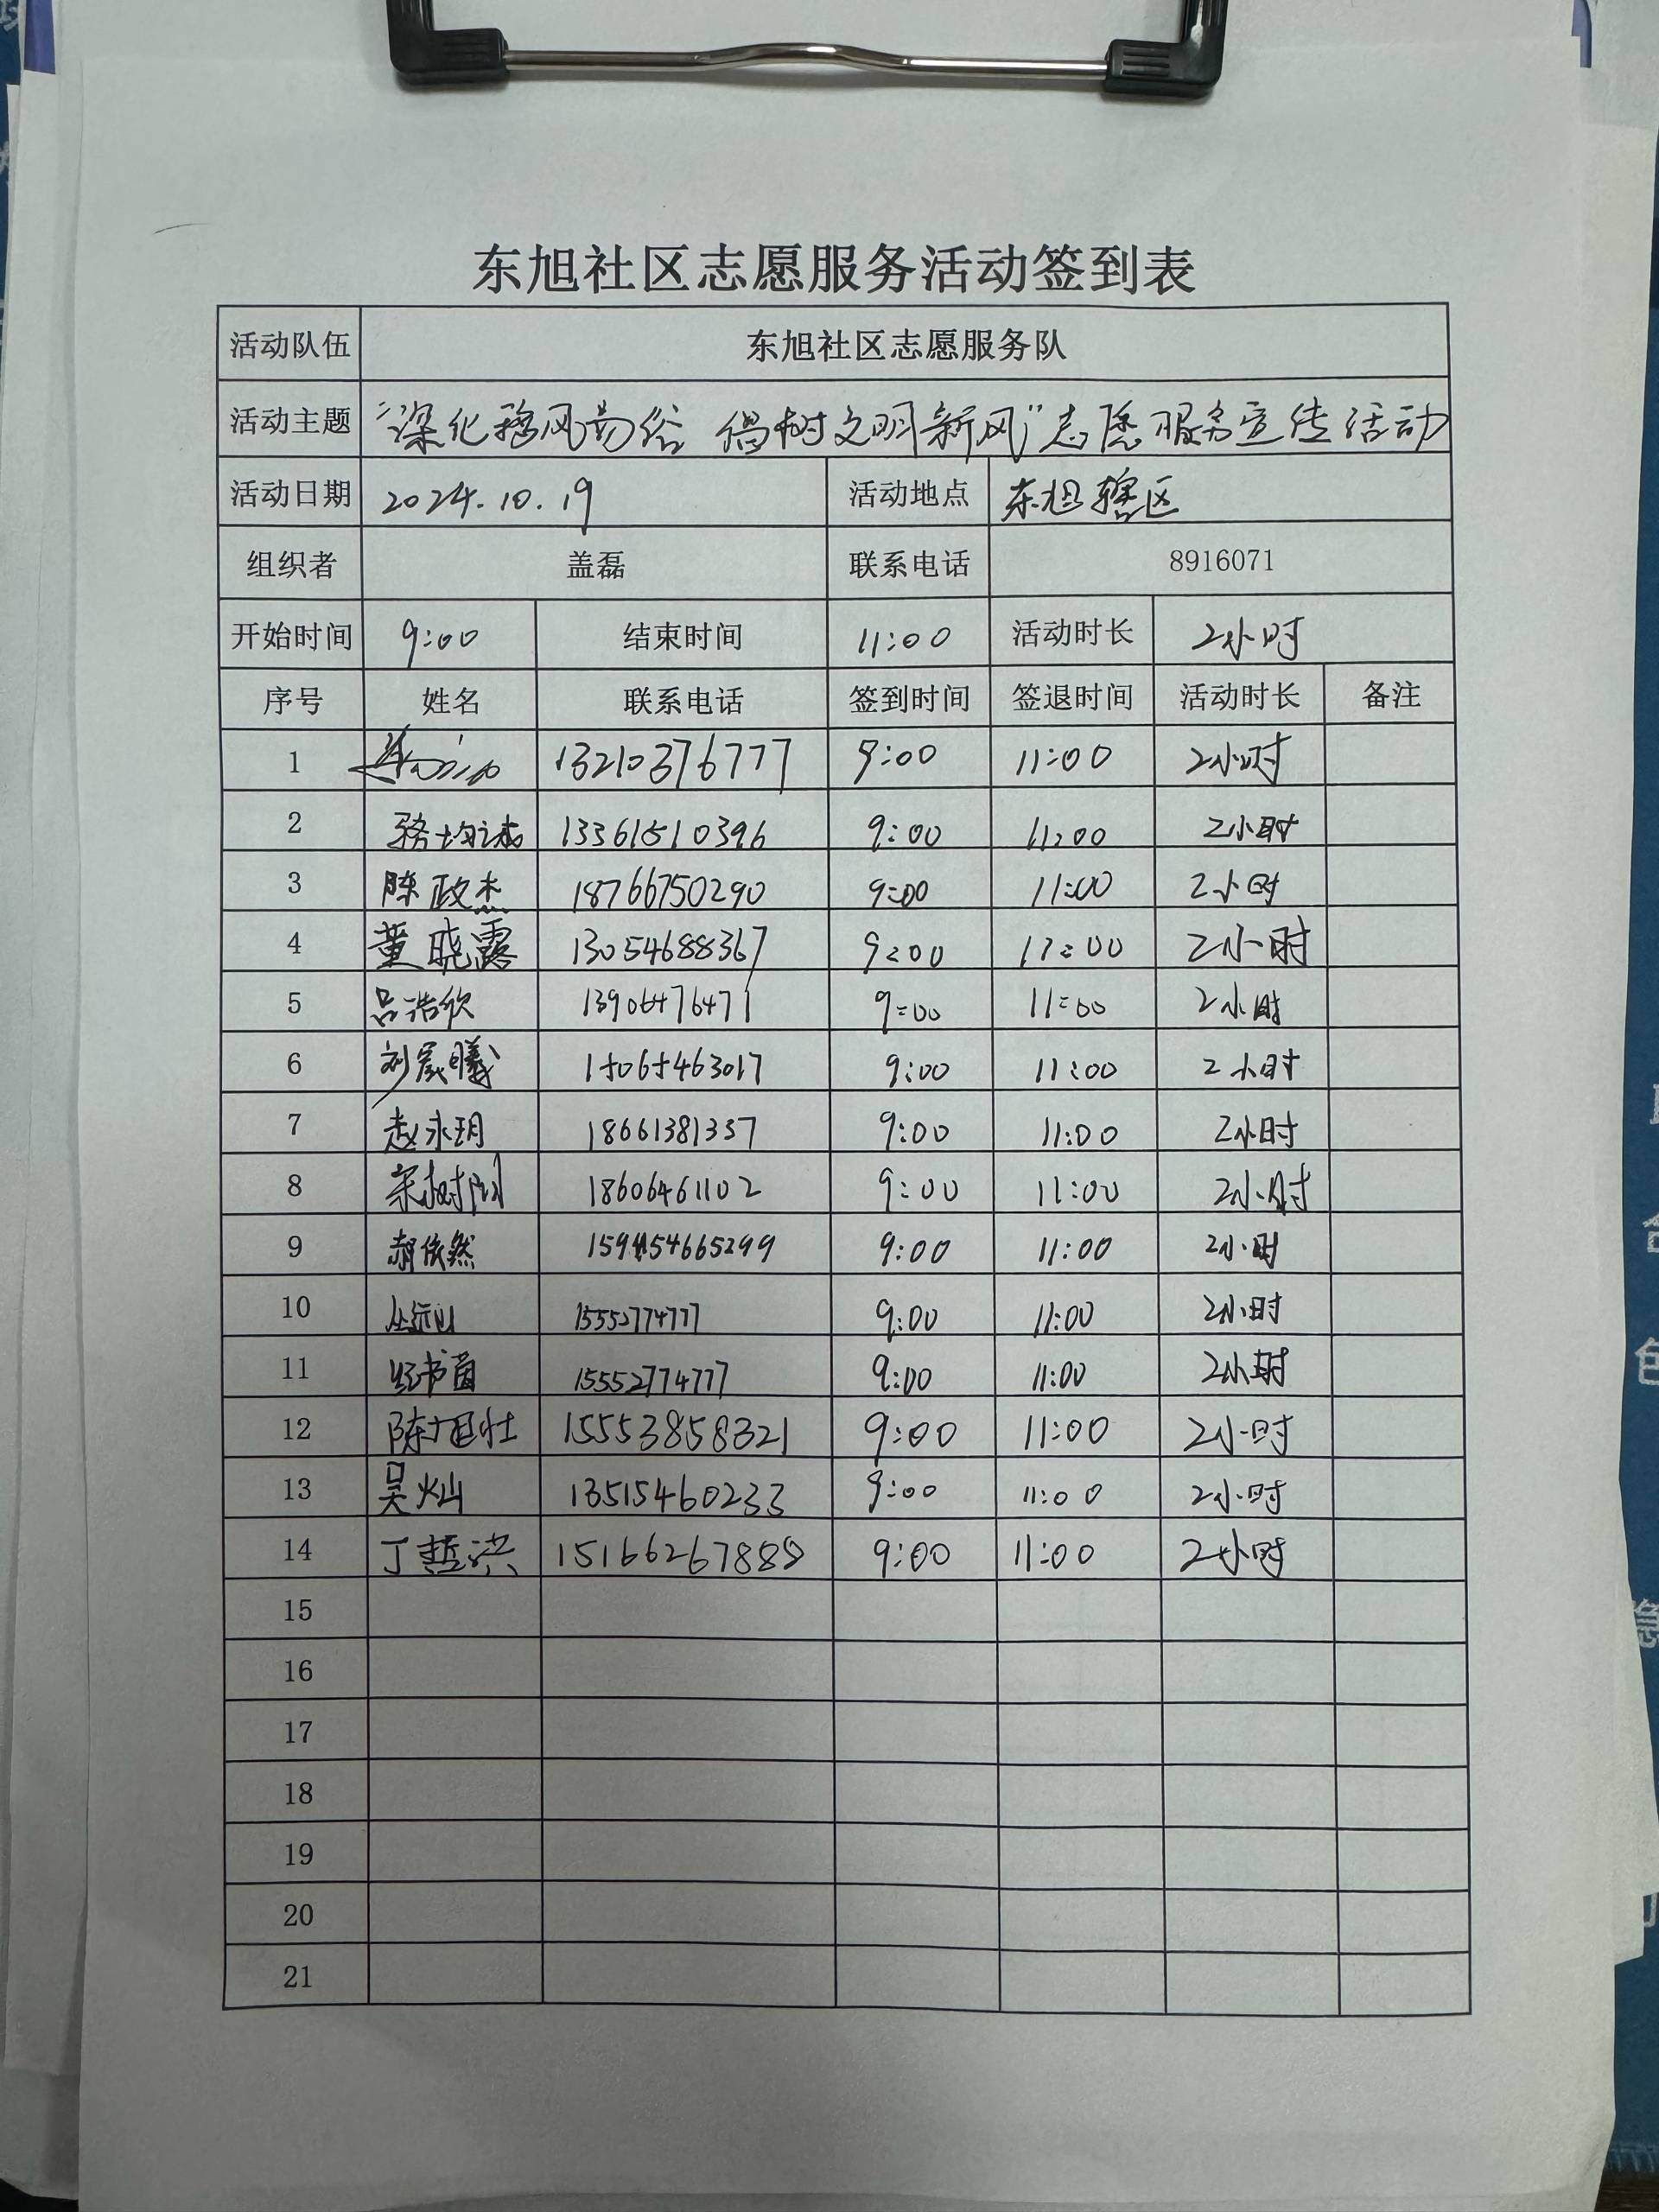 东旭社区志愿服务活动签到表
活动队伍 东旭社区志愿服务队
活动主题 "深化移风易俗 倡树文明新风"志愿服务宣传活动
活动日期 2024.10.19 活动地点 东旭辖区
组织者 盖磊 联系电话 8916071
开始时间 9:00 结束时间 11:00 活动时长 2小时
序号 姓名 联系电话 签到时间 签退时间 活动时长 备注
1 13210376777 9:00 11:00 2小时
2 13361510396 9:00 11:00 2小时
3 陈政杰 18766750290 9:00 11:00 2小时
4 董晓露 13054688367 9:00 11:00 2小时
5 吕浩欣 13906476471 9:00 11:00 2小时
6 刘晟曦 15065463017 9:00 11:00 2小时
7 赵永玥 18661381337 9:00 11:00 2小时
8 宋树阳 18606461102 9:00 11:00 2小时
9 郝依然 9:00 11:00 2小时
10 丛沅山 15552774777 9:00 11:00 2小时
11 15552774777 9:00 11:00 2小时
12 陈旭壮 15553858321 9:00 11:00 2小时
13 吴灿 13515460233 9:00 11:00 2小时
14 丁哲洪 15166267888 9:00 11:00 2小时
15
16
17
18
19
20
21